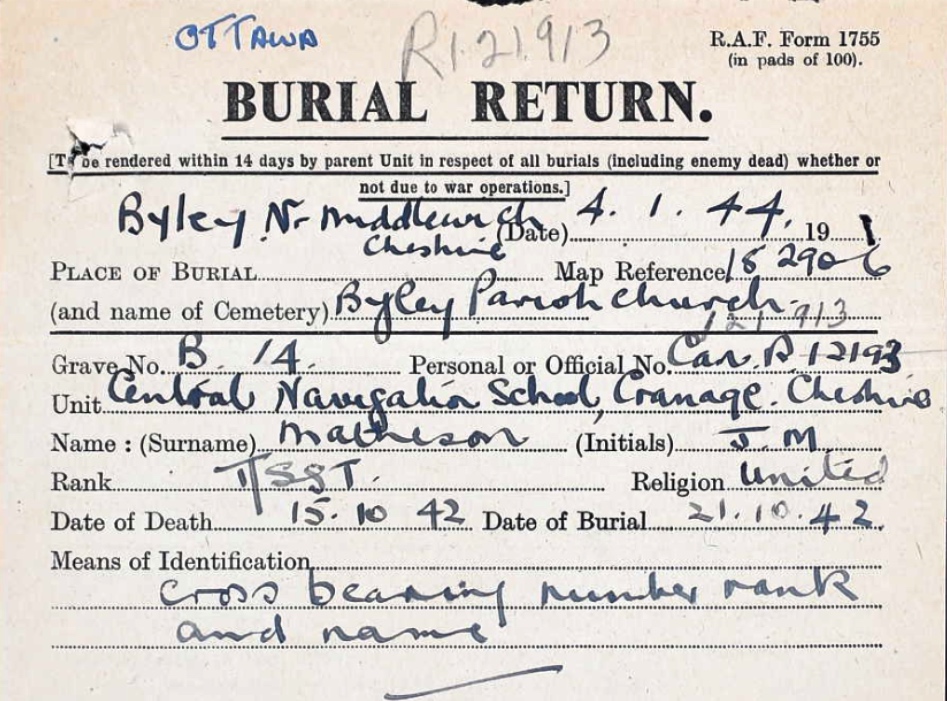 OTTAWA R121913 R.A.F. Form 1755
(in pads of 100).
BURIAL RETURN.
[To be rendered within 14 days by parent Unit in respect of all burials (including enemy dead) whether or
not due to war operations.]
Byley Nr Middlewich (Date) 4. 1. 44. 19
Cheshire
PLACE OF BURIAL Map Reference 18 2906
(and name of Cemetery) Byley Parish Church.
121913
Grave No. B. 14. Personal or Official No. Can. R. 12193
Unit Central Navigation School, Cranage. Cheshire
Name : (Surname) Matheson (Initials) J. M.
Rank T/SGT. Religion United
Date of Death 15. 10 42 Date of Burial 21. 10. 42.
Means of Identification
Cross bearing number rank
and name